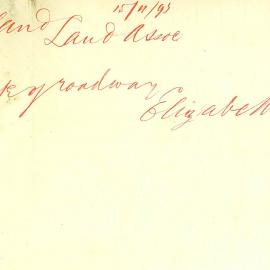 15/11/93
land
Land Assoc
k of roadway
Elizabeth